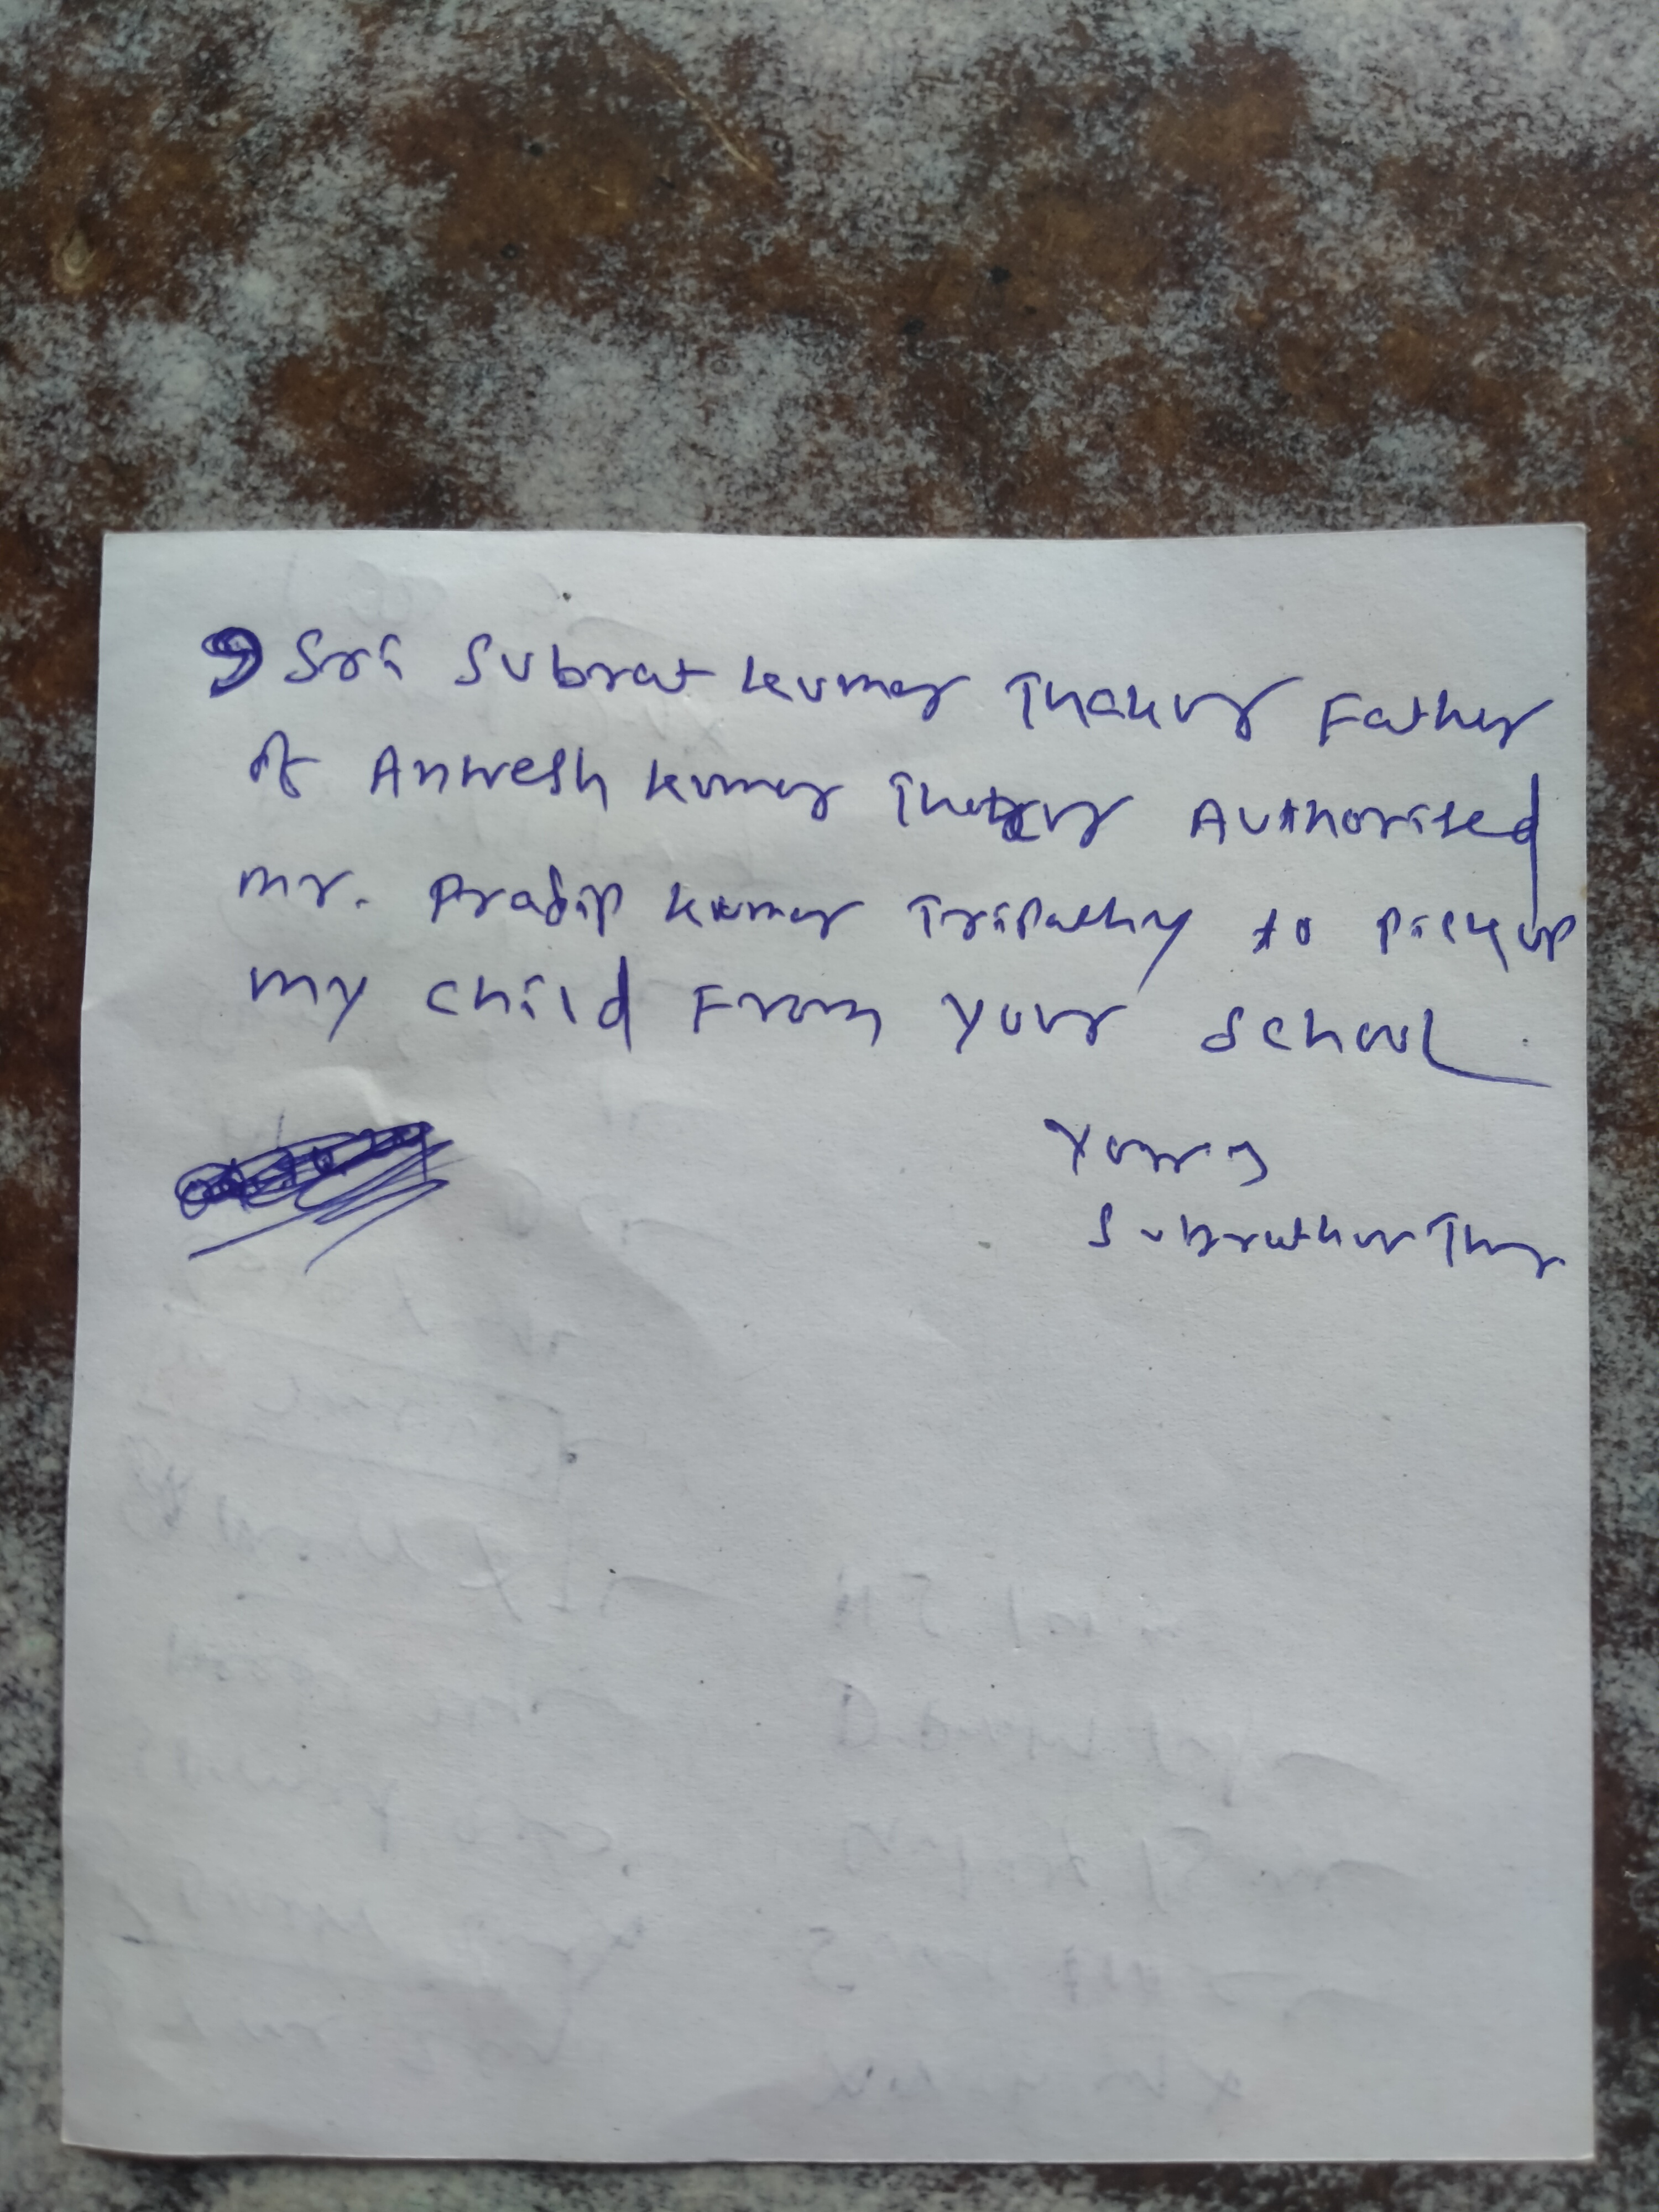 I Sri Subrat kumar Thakur Father
of Anwesh kumar Thakur Authorised
mr. Pradip kumar Tripathy to Pickup
my child From your School
yours